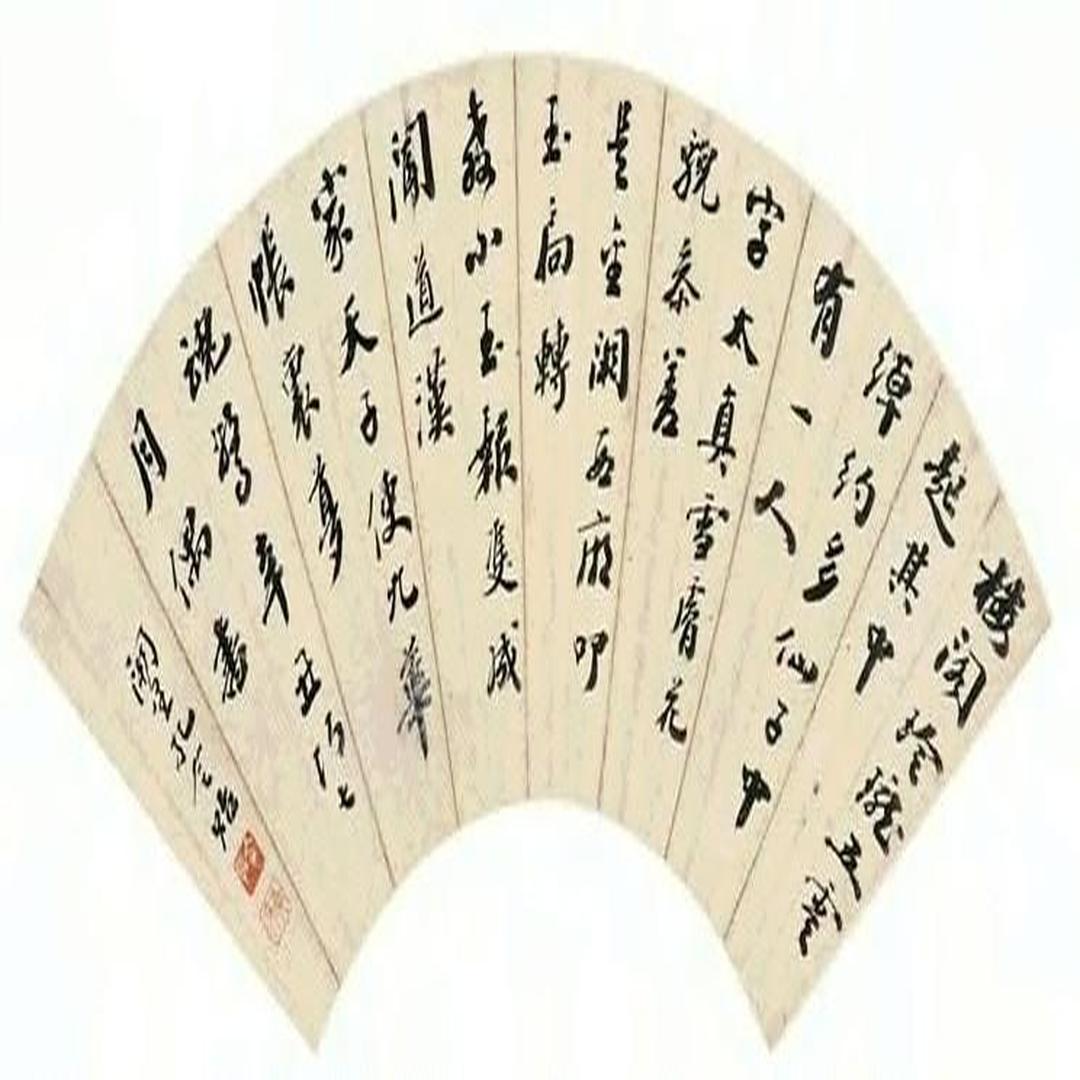 樓閣玲瓏五雲
起其中
綽約多仙子中
有一人
字太真雪膚花
貌參差
是金闕西廂叩
玉扃轉
教小玉報雙成
聞道漢
家天子使九華
帳裏夢
魂驚辛丑七
月偶書